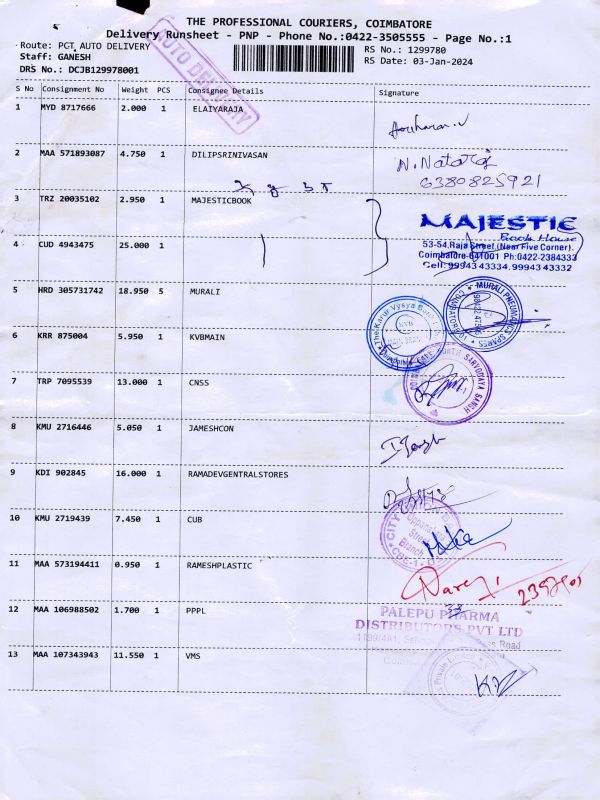 THE PROFESSIONAL COURIERS, COIMBATORE
Delivery Runsheet - PNP - Phone No.:0422-3505555 - Page No.:1
Route: PCT AUTO DELIVERY
RS No.: 1299780
Staff: GANESH
RS Date: 03-Jan-2024
DRS No.: DCJB129978001
AUTO DELIVERY
S No Consignment No Weight PCS Consignee Details Signature
1 MYD 8717666 2.000 1 ELAIYARAJA
2 MAA 571893087 4.750 1 DILIPSRINIVASAN N.Nataraj
6380825921
3 TRZ 20035102 2.950 1 MAJESTICBOOK
MAJESTIC
Book House
53-54, Raja Street, (Near Five Corner),
Coimbatore-641001 Ph:0422-2384333
Cell: 99943 43334, 99943 43332
4 CUD 4943475 25.000 1
5 HRD 305731742 18.950 5 MURALI
MURALI PNEUMATICS SPARES
COIMBATORE
6 KRR 875004 5.950 1 KVBMAIN
The Karur Vysya Bank
KVB
7 TRP 7095539 13.000 1 CNSS
NORTH SARVODAYA SANGH
8 KMU 2716446 5.050 1 JAMESHCON
9 KDI 902845 16.000 1 RAMADEVGENTRALSTORES
10 KMU 2719439 7.450 1 CUB
CITY
Street
Branch
CBE-1
11 MAA 573194411 0.950 1 RAMESHPLASTIC
12 MAA 106988502 1.700 1 PPPL
PALEPU PHARMA
DISTRIBUTORS PVT LTD
Road
13 MAA 107343943 11.550 1 VMS